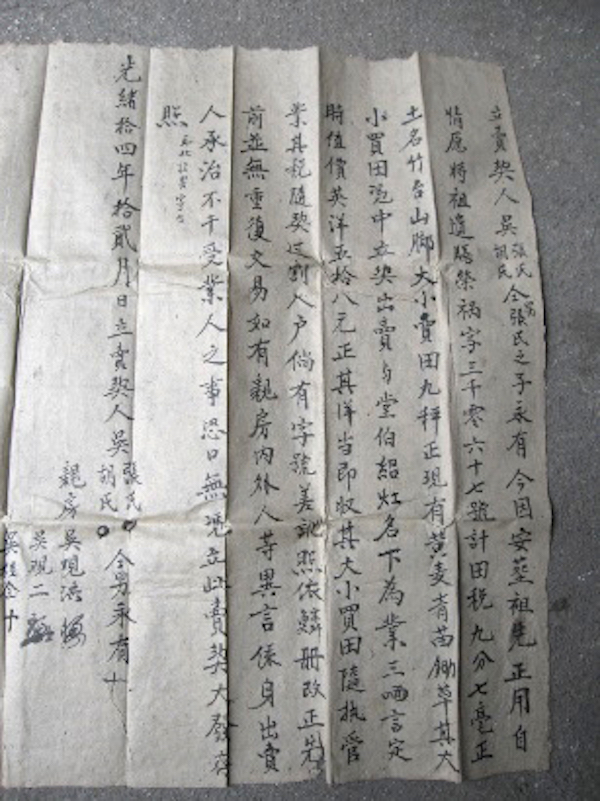 立賣契人吳張氏胡氏仝張氏之子永有今因安塟祖先正用自
情愿將祖遺賜榮禍字三千零六十七號計田稅九分七毫正
土名竹皆山脚大小賣田九秤正現有黃麦青苗鋤草其大
小買田憑中立契出賣与堂伯紹灴名下為業三面言定
時值價英洋五拾八元正其洋当即收其大小買田隨執管
業其稅隨契过割入户倘有字號差訛照依鱗册改正先
前並無重復交易如有親房內外人等異言係身出賣
人承治不干受業人之事恐口無凭立此賣契大發存
照
光緒拾四年拾貳月日立賣契人吳張氏胡氏仝男永有十
親房吳現洪
吳現二